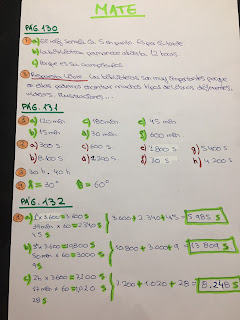 MATE
PÁG. 130
1 a) El reloj señala las 5 en punto. Es por la tarde
b) La biblioteca permanece abierta 12 horas
c) Porque es su cumpleaños.
2 Respuesta Libre. Las bibliotecas son muy importantes porque
en ellas podemos encontrar muchos tipos de libros diferentes,
videos, ilustraciones...
PÁG. 131
1 a) 120 min c) 180 min e) 45 min
b) 15 min d) 30 min f) 600 min
2 a) 300 s c) 600 s e) 1.800 s g) 5.400 s
b) 8.100 s d) 1.200 s f) 30 s h) 4.200 s
3 20 h. 40 h
4 A = 30° B = 60°
PÁG. 132
1 a) 1 x 3.600 = 3.600 s
39 min x 60 = 2.340 s
45 s
3.600 + 2.340 + 45 = 5.985 s
b) 3 x 3.600 = 10.800 s
50 min x 60 = 3.000 s
9 s
10.800 + 3.000 + 9 = 13.809 s
c) 2h x 3.600 = 7.200 s
17 min x 60 = 1.020 s
28 s
7.200 + 1.020 + 28 = 8.248 s